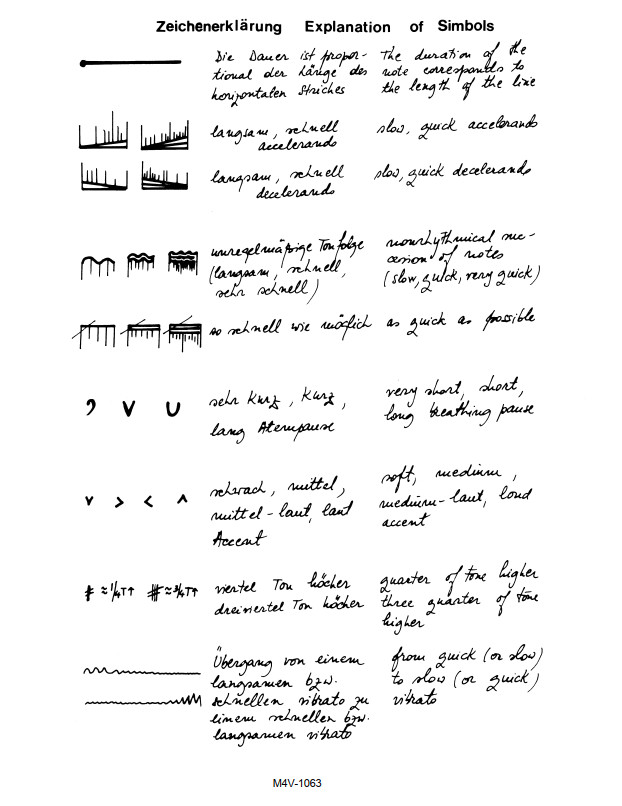 Zeichenerklärung Explanation of Simbols
Die Dauer ist propor-
tional der Länge des
horizontalen Striches
The duration of the
note corresponds to
the length of the line
langsam, schnell
accelerando
slow, quick accelerando
langsam, schnell
decelerando
slow, quick decelerando
unregelmäßige Tonfolge
(langsam, schnell,
sehr schnell)
nourhythmical suc-
cesion of notes
(slow, quick, very quick)
so schnell wie möglich
as quick as possible
sehr kurz, kurz,
lang Atempause
very short, short,
long breathing pause
schwach, mittel,
mittel-laut, laut
Accent
soft, medium,
medium-laut, loud
accent
≈ 1/4 T↑ ≈ 3/4 T↑
viertel Ton höcher
dreiviertel Ton höcher
quarter of tone higher
three quarter of tone
higher
Übergang von einem
langsamen bzw.
schnellen vibrato zu
einem schnellen bzw.
langsamen vibrato
from quick (or slow)
to slow (or quick)
vibrato
M4V-1063